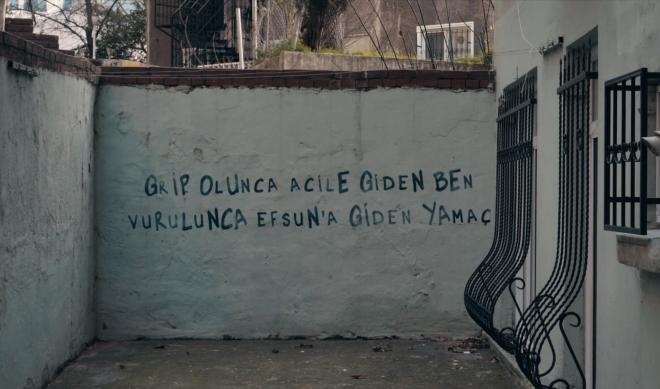 GRİP OLUNCA ACİLE GİDEN BEN
VURULUNCA EFSUN'A GİDEN YAMAÇ